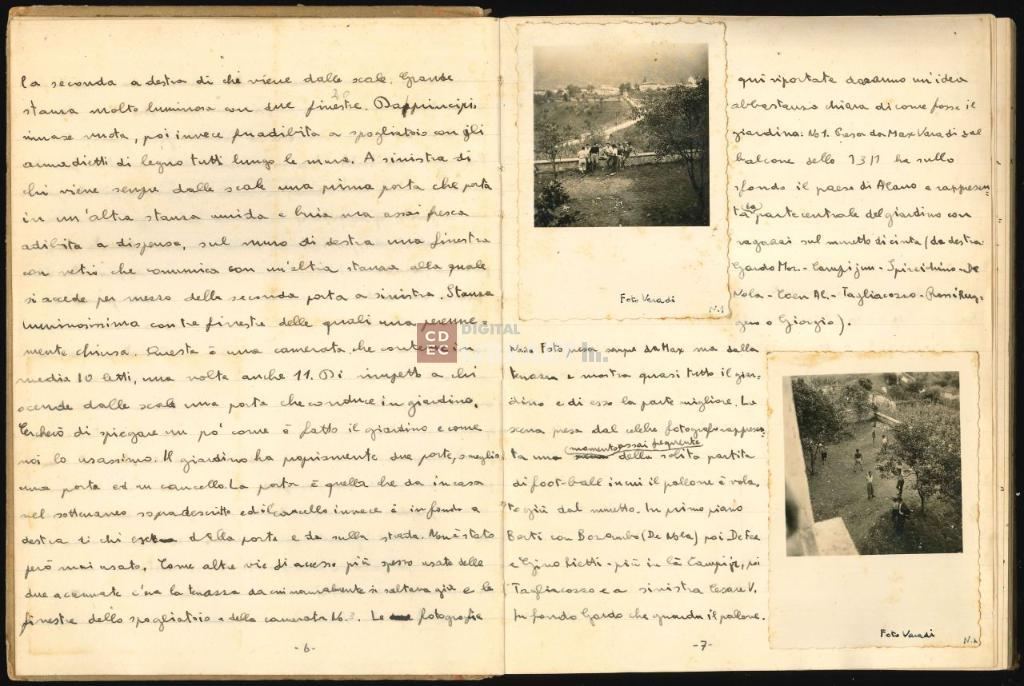 la seconda a destra di chi viene dalle scale. Grande
stanza molto luminosa con due finestre. Dapprincipio
rimase vuota, poi invece fu adibita a spogliatoio con gli
armadietti di legno tutti lungo le mura. A sinistra di
chi viene sempre dalle scale una prima porta che porta
in un'altra stanza umida e buia ma assai fresca
adibita a dispensa, sul muro di destra una finestra
con vetri che comunica con un'altra stanza alla quale
si accede per mezzo della seconda porta a sinistra. Stanza
luminosissima con tre finestre delle quali una perenne-
mente chiusa. Questa è una camerata che contiene in
media 10 letti, una volta anche 11. Di rimpetto a chi
scende dalle scale una porta che conduce in giardino.
Cercherò di spiegare un po' come è fatto il giardino e come
noi lo usassimo. Il giardino ha propriamente due porte, o meglio
una porta ed un cancello. La porta è quella che dà in casa
nel sotterraneo sopradescritto ed il cancello invece è in fondo a
destra di chi esce dalla porta e dà sulla strada. Non è stato
però mai usato. Come altre vie di accesso più spesso usate delle
due accennate c'era la terrazza da cui normalmente si saltava giù e le
finestre dello spogliatoio e della camerata N.3. Le fotografie
-6-
Foto Varadi
N.1
qui riportate daranno un'idea
abbastanza chiara di come fosse il
giardino: No1. Presa da Max Varadi dal
balcone dello ha sullo
sfondo il paese di Alano e rappresen-
ta la parte centrale del giardino con
ragazzi sul muretto di cinta (da destra
Gardo Mor.- Campi jun - - De
Nola - Coen Al. - Tagliacozzo -
o Giorgio).
Foto presa sempre da Max ma dalla
terrazza e mostra quasi tutto il giar-
dino e di esso la parte migliore. La
scena presa dal celebre fotografo rappresen-
ta una momento assai frequente della solita partita
di foot-ball in cui il pallone è vola-
to giù dal muretto. In primo piano
Berti con Borambo (De Nola) poi De Fea
e Gino Lietti - più in là Campi jr, poi
Tagliacozzo e a sinistra Cesare V.
In fondo Gardo che guarda il pallone.
-7-
Foto Varadi
N.2
CDEC
DIGITAL